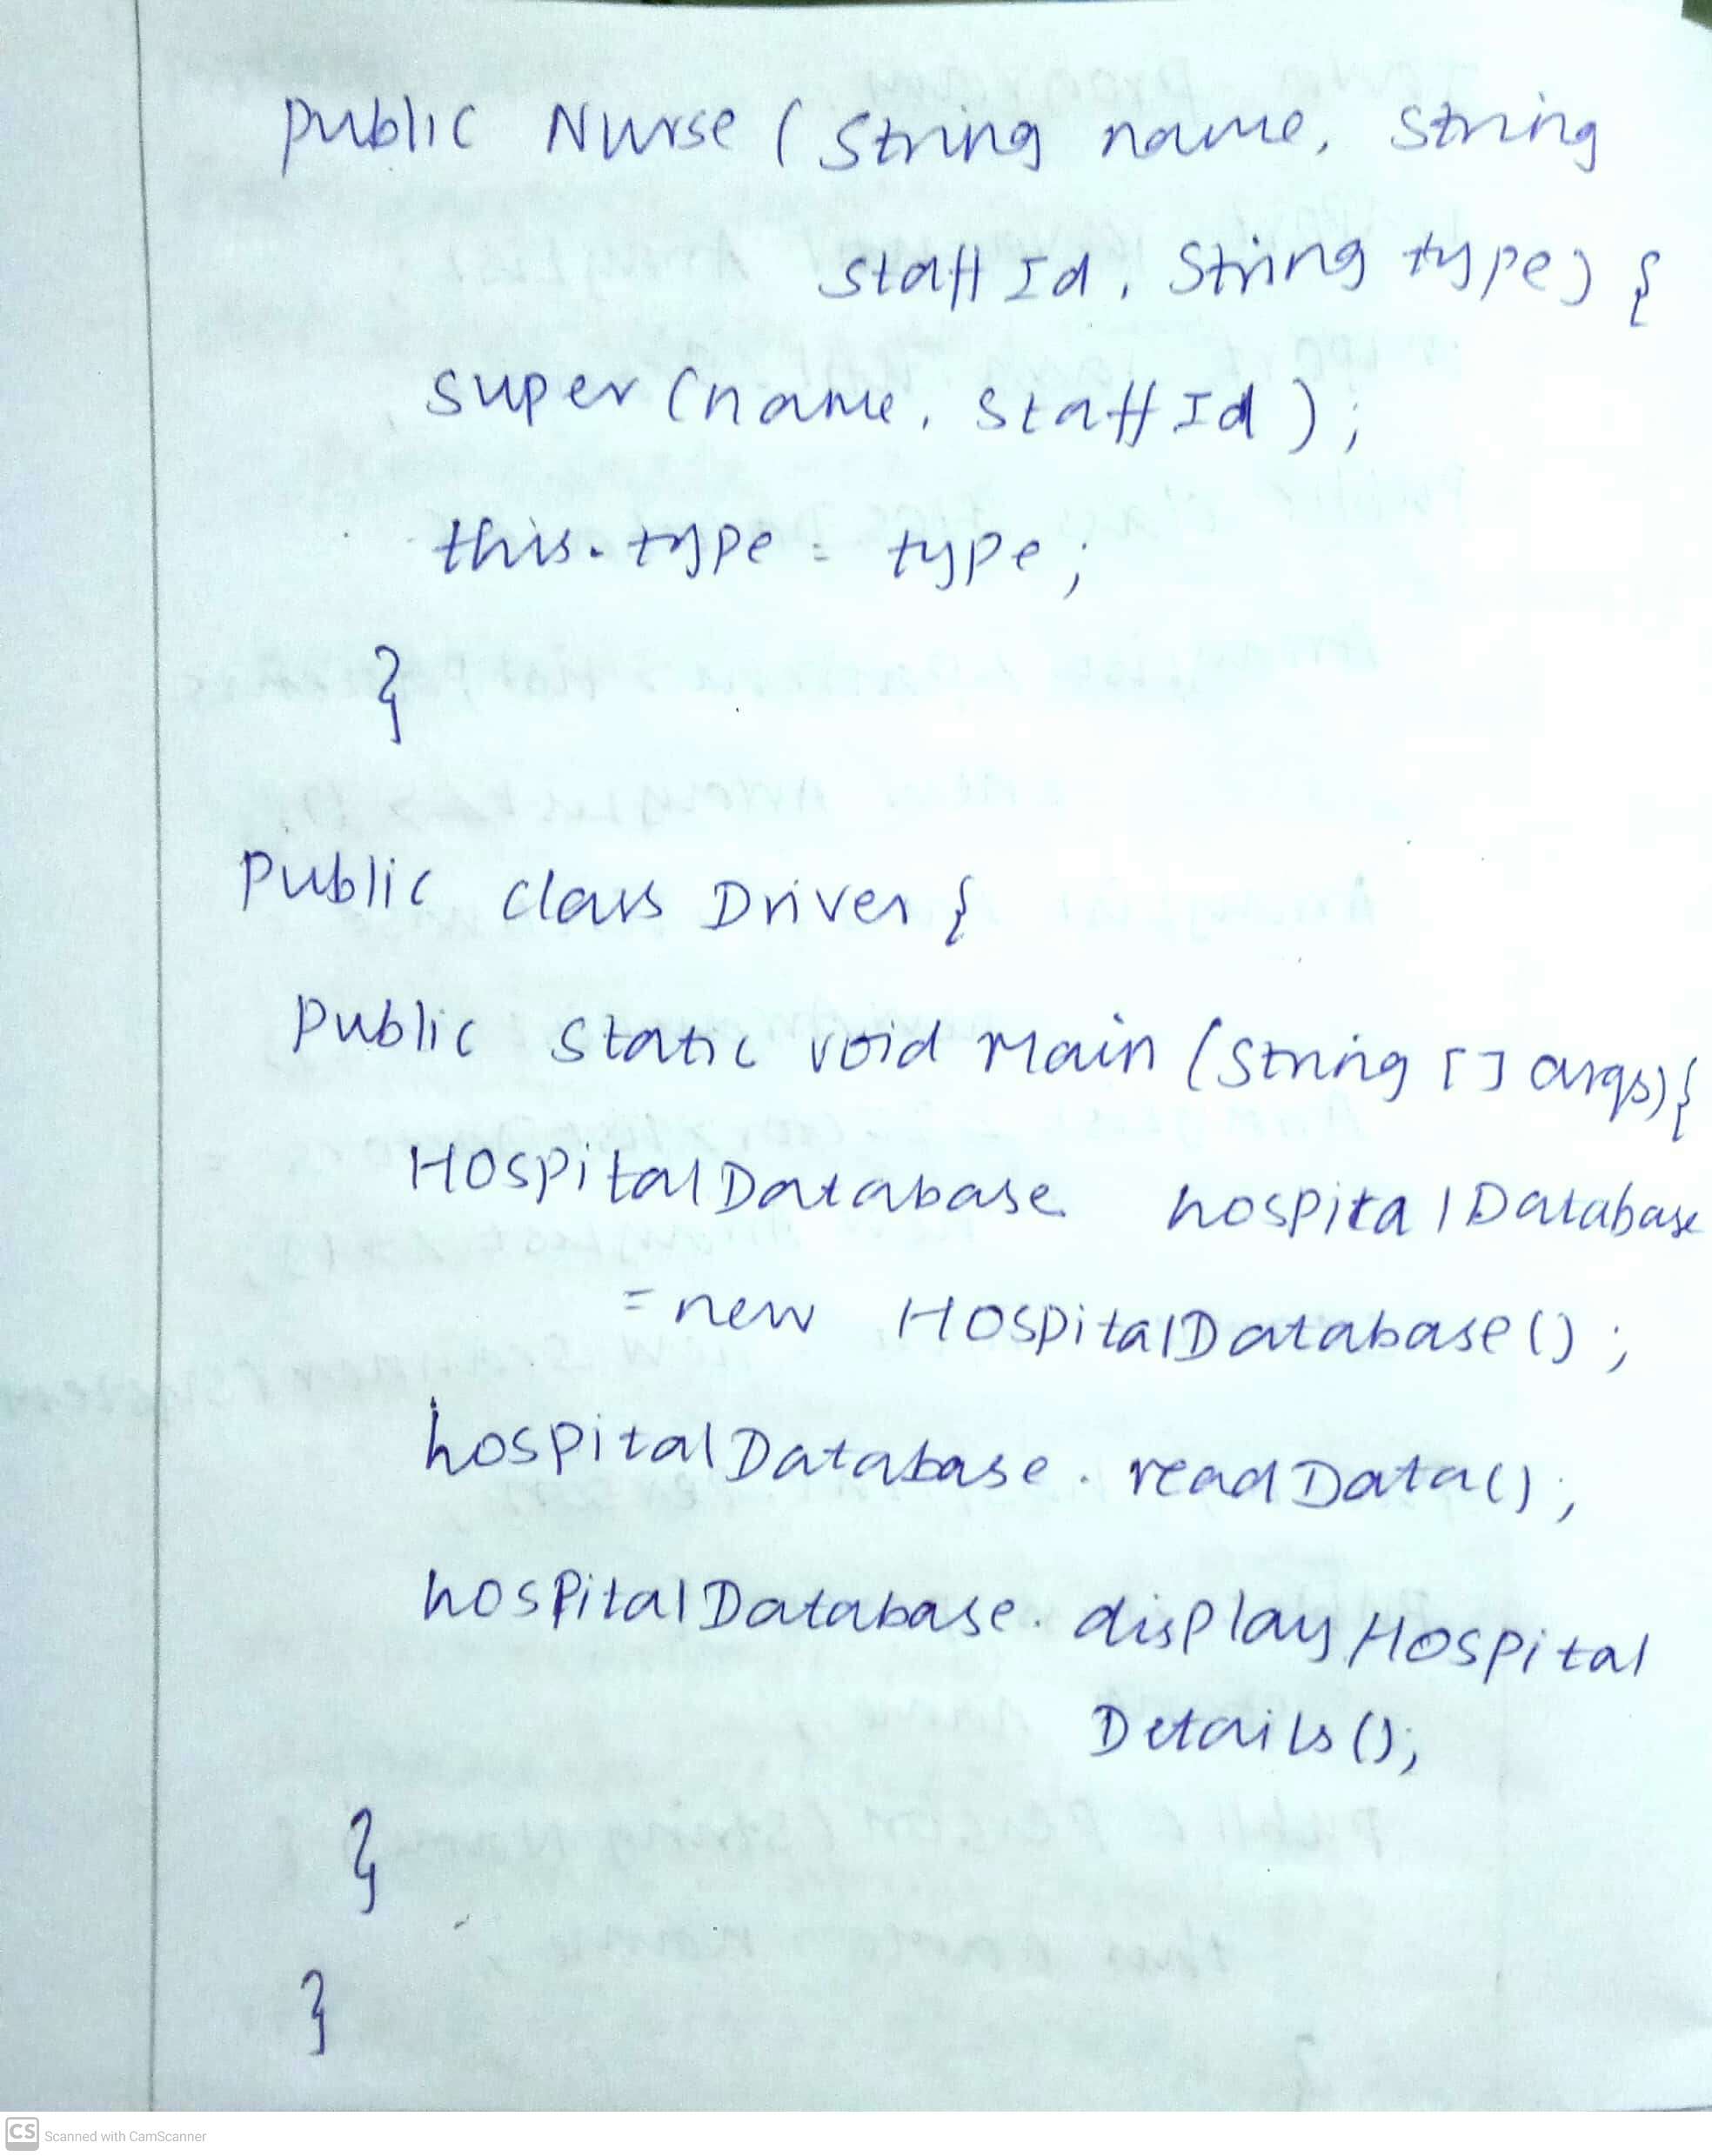 public Nurse (String name, String
staff Id, String type) {
super (name, staff Id);
this.type = type;
}
Public class Driver {
Public static void Main (String [] args) {
HospitalDatabase hospitalDatabase
= new HospitalDatabase();
hospitalDatabase.readData();
hospitalDatabase.displayHospital
Details();
}
}
CS Scanned with CamScanner